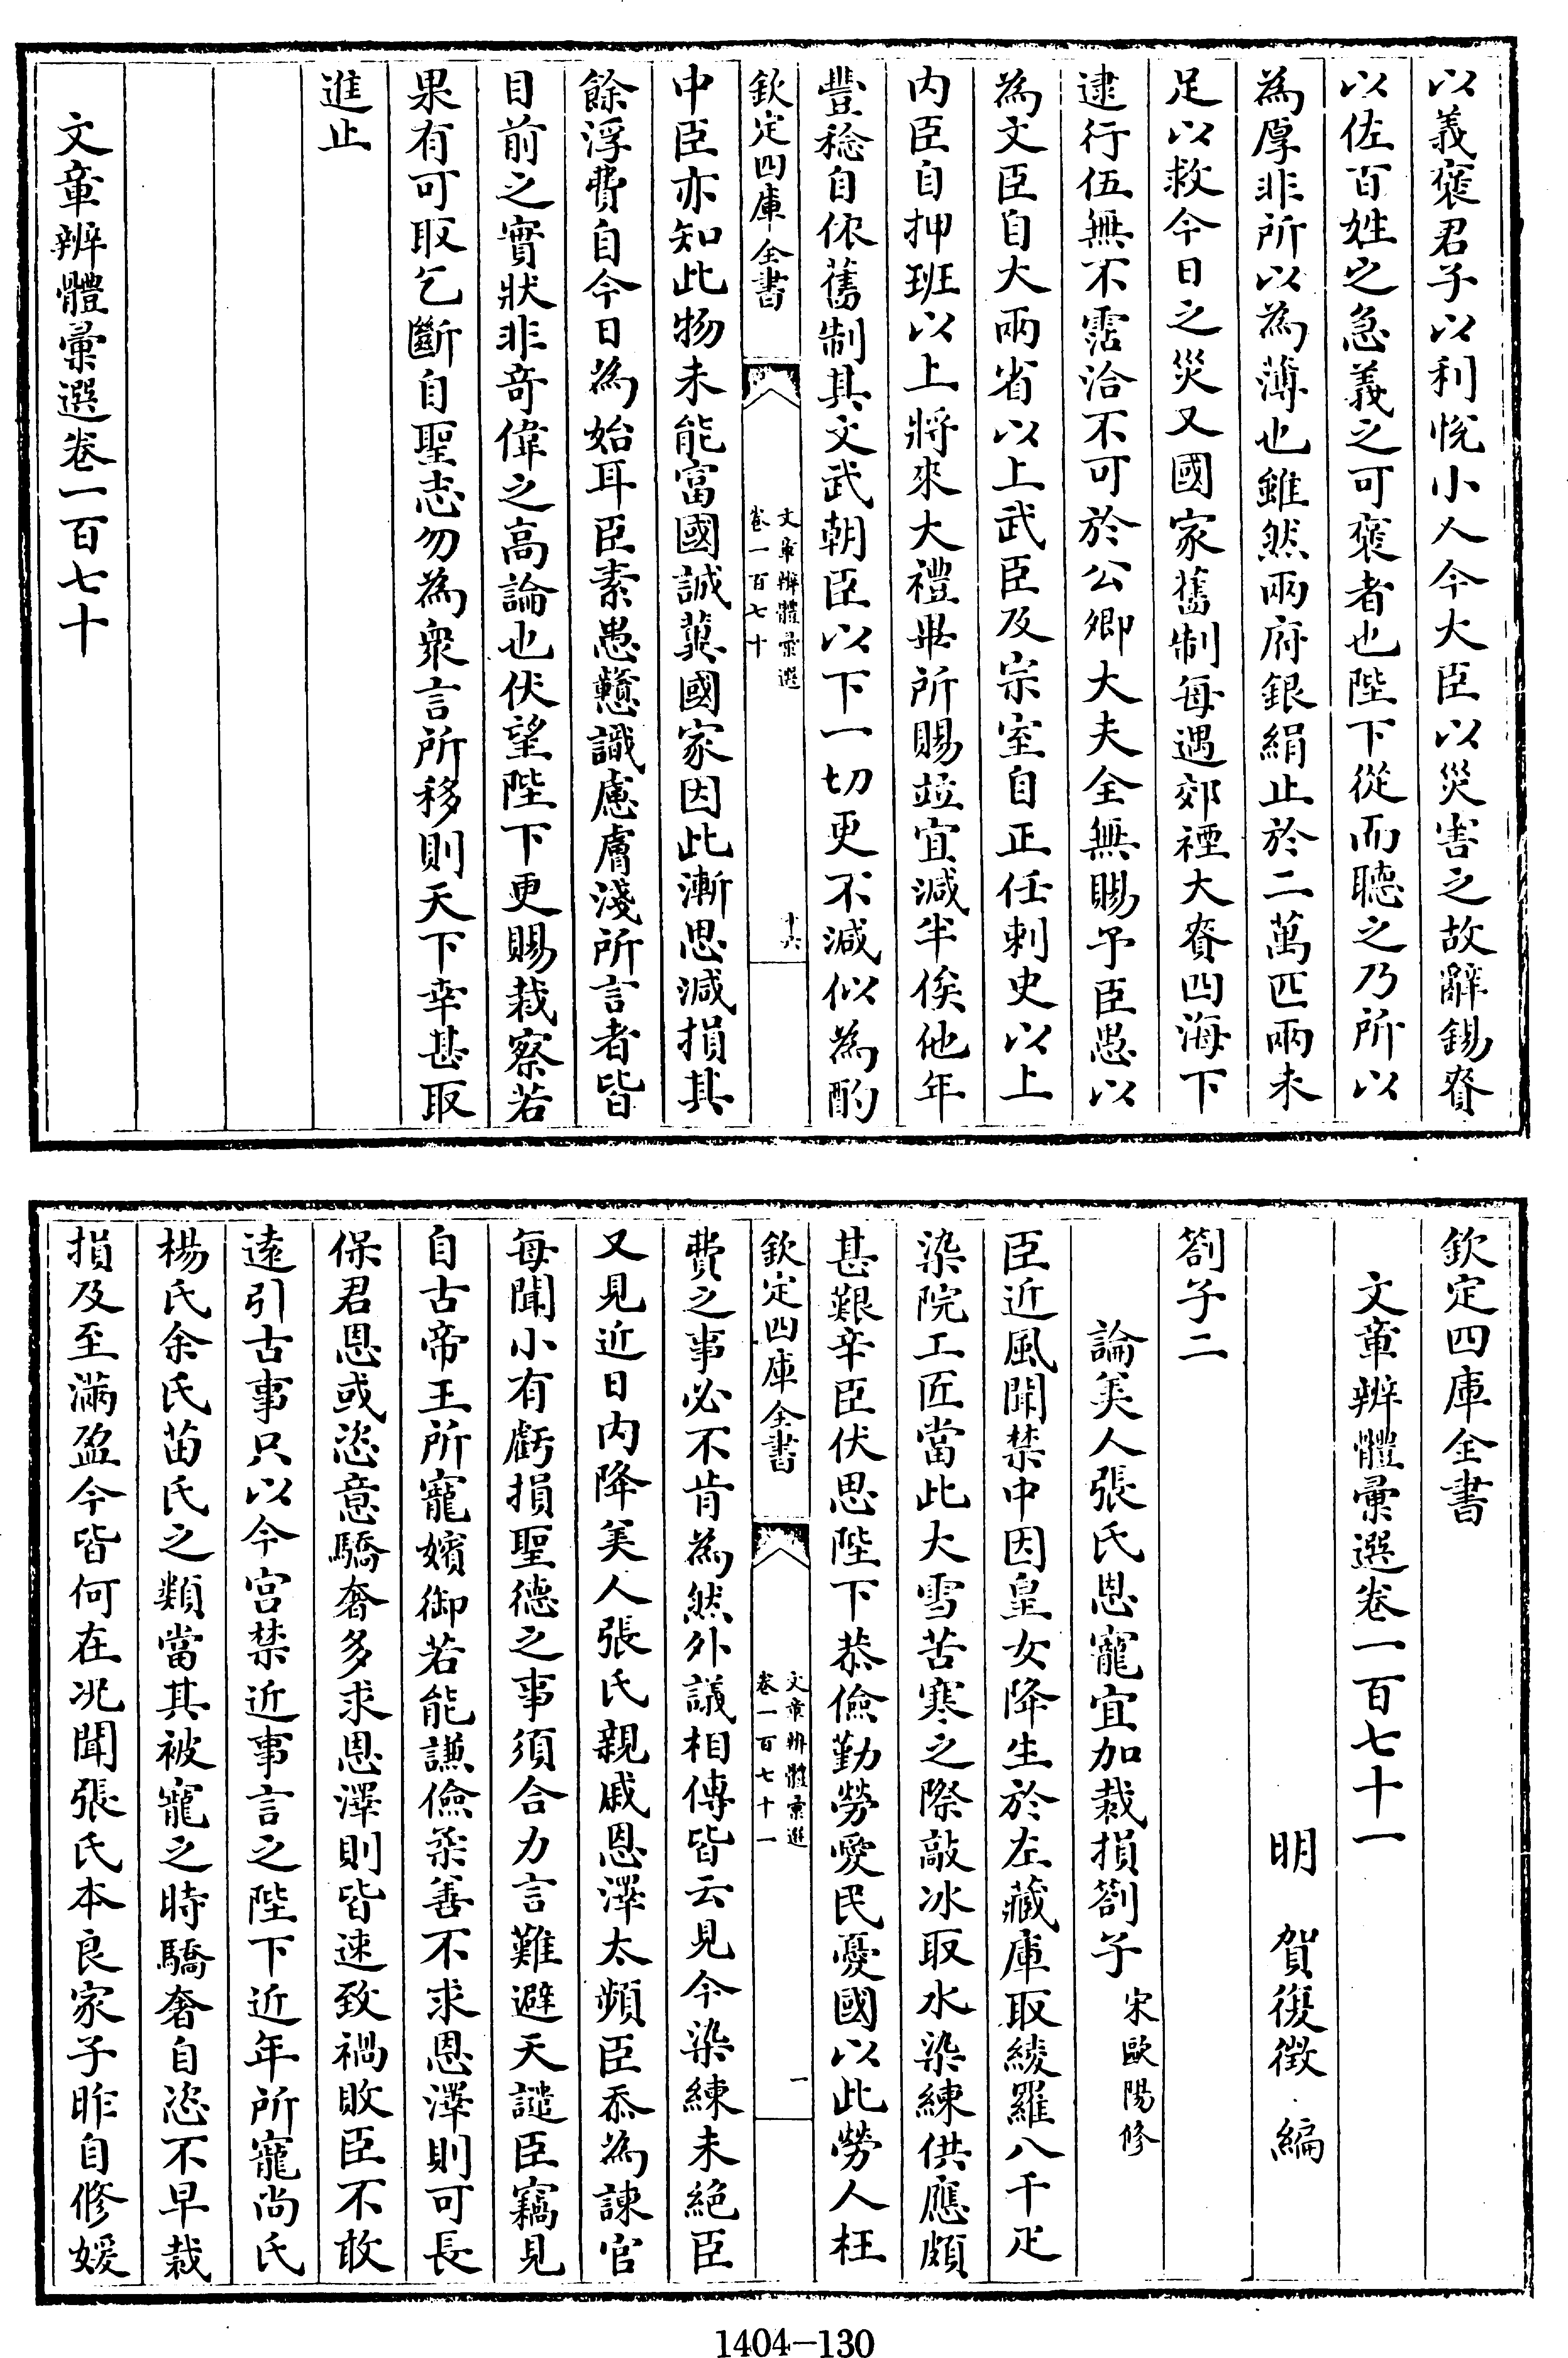 以義褒君子以利悅小人今大臣以災害之故辭錫賚
以佐百姓之急義之可褒者也陛下從而聽之乃所以
為厚非所以為薄也雖然兩府銀絹止於二萬匹兩未
足以救今日之災又國家舊制每遇郊禋大賚四海下
逮行伍無不霑洽不可於公卿大夫全無賜予臣愚以
為文臣自大兩省以上武臣及宗室自正任刺史以上
内臣自押班以上將來大禮畢所賜竝宜減半俟他年
豐稔自依舊制其文武朝臣以下一切更不減似為酌
欽定四庫全書
文章辨體彙選
卷一百七十
十六
中臣亦知此物未能富國誠冀國家因此漸思減損其
餘浮費自今日為始耳臣素愚戇識慮膚淺所言者皆
目前之實狀非竒偉之高論也伏望陛下更賜裁察若
果有可取乞斷自聖志勿為衆言所移則天下幸甚取
進止
文章辨體彙選卷一百七十
欽定四庫全書
文章辨體彙選卷一百七十一
明 賀復徵 編
劄子二
論美人張氏恩寵宜加裁損劄子 宋歐陽修
臣近風聞禁中因皇女降生於左藏庫取綾羅八千疋
染院工匠當此大雪苦寒之際敲冰取水染練供應頗
甚艱辛臣伏思陛下恭儉勤勞愛民憂國以此勞人枉
欽定四庫全書
文章辨體彙選
卷一百七十一
一
費之事必不肯為然外議相傳皆云見今染練未絕臣
又見近日内降美人張氏親戚恩澤太頻臣忝為諫官
每聞小有虧損聖德之事須合力言難避天譴臣竊見
自古帝王所寵嬪御若能謙儉柔善不求恩澤則可長
保君恩或恣意驕奢多求恩澤則皆速致禍敗臣不敢
遠引古事只以今宮禁近事言之陛下近年所寵尚氏
楊氏余氏苗氏之類當其被寵之時驕奢自恣不早裁
損及至滿盈今皆何在况聞張氏本良家子昨自修媛
1404-130